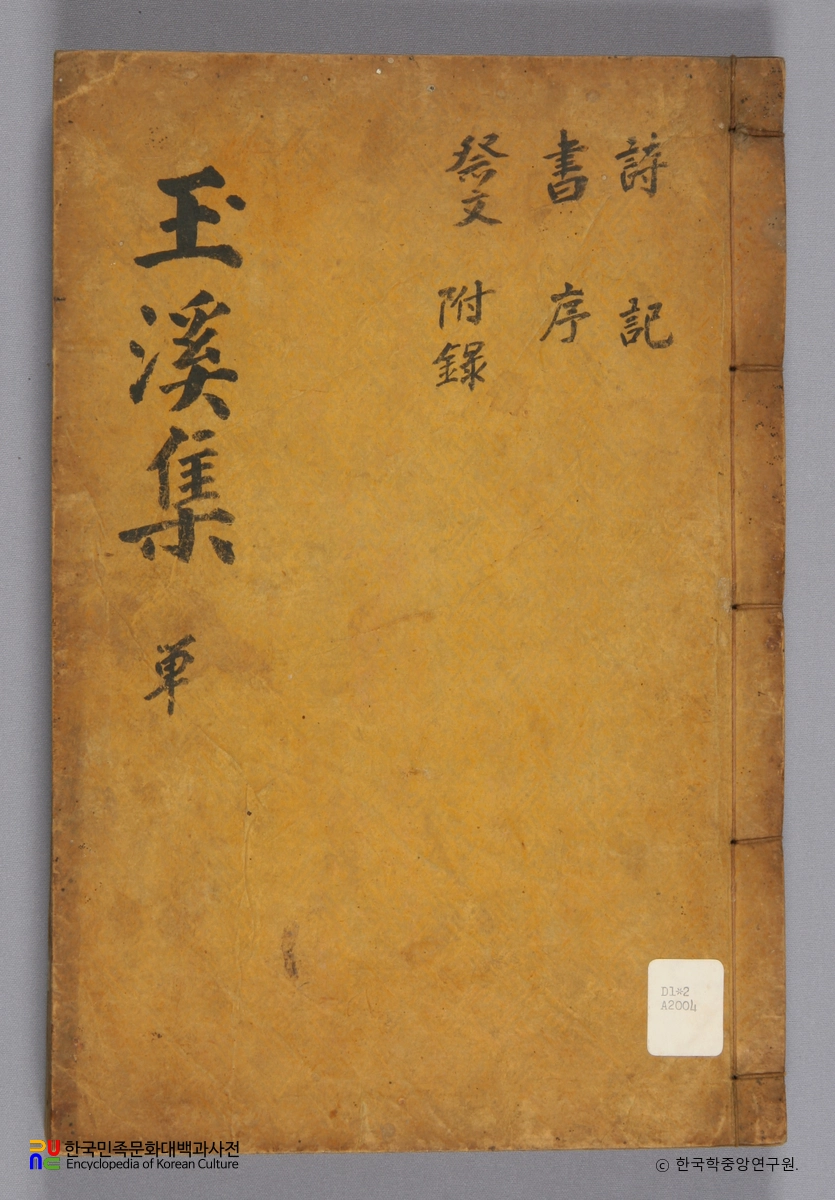 詩 記
書 序
祭文 附錄
玉溪集 单
D1#2
A2004
한국민족문화대백과사전
Encyclopedia of Korean Culture
© 한국학중앙연구원.